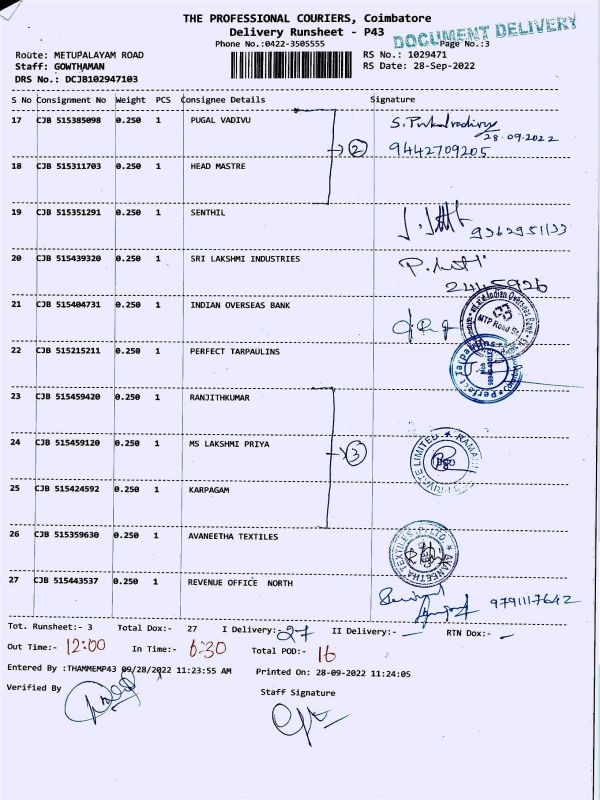 THE PROFESSIONAL COURIERS, Coimbatore
Delivery Runsheet - P43
DOCUMENT DELIVERY
Phone No.:0422-3505555
Page No.:3
Route: METUPALAYAM ROAD
RS No.: 1029471
Staff: GOWTHAMAN
RS Date: 28-Sep-2022
DRS No.: DCJB102947103
S No Consignment No Weight PCS Consignee Details Signature
17 CJB 515385098 0.250 1 PUGAL VADIVU
28.09.2022
2 9442709205
18 CJB 515311703 0.250 1 HEAD MASTRE
19 CJB 515351291 0.250 1 SENTHIL
9362951133
20 CJB 515439320 0.250 1 SRI LAKSHMI INDUSTRIES
2445926
21 CJB 515404731 0.250 1 INDIAN OVERSEAS BANK
MTP Road
22 CJB 515215211 0.250 1 PERFECT TARPAULINS
Perfect Tarpaulins
23 CJB 515459420 0.250 1 RANJITHKUMAR
24 CJB 515459120 0.250 1 MS LAKSHMI PRIYA
3
PRIVATE LIMITED
25 CJB 515424592 0.250 1 KARPAGAM
26 CJB 515359630 0.250 1 AVANEETHA TEXTILES
AVANEETHA TEXTILES
27 CJB 515443537 0.250 1 REVENUE OFFICE NORTH
9791117642
Tot. Runsheet:- 3 Total Dox:- 27 I Delivery:- 27 II Delivery:- - RTN Dox:- -
Out Time:- 12:00 In Time:- 6:30 Total POD:- 16
Entered By :THAMMEMP43 09/28/2022 11:23:55 AM Printed On: 28-09-2022 11:24:05
Verified By
Staff Signature